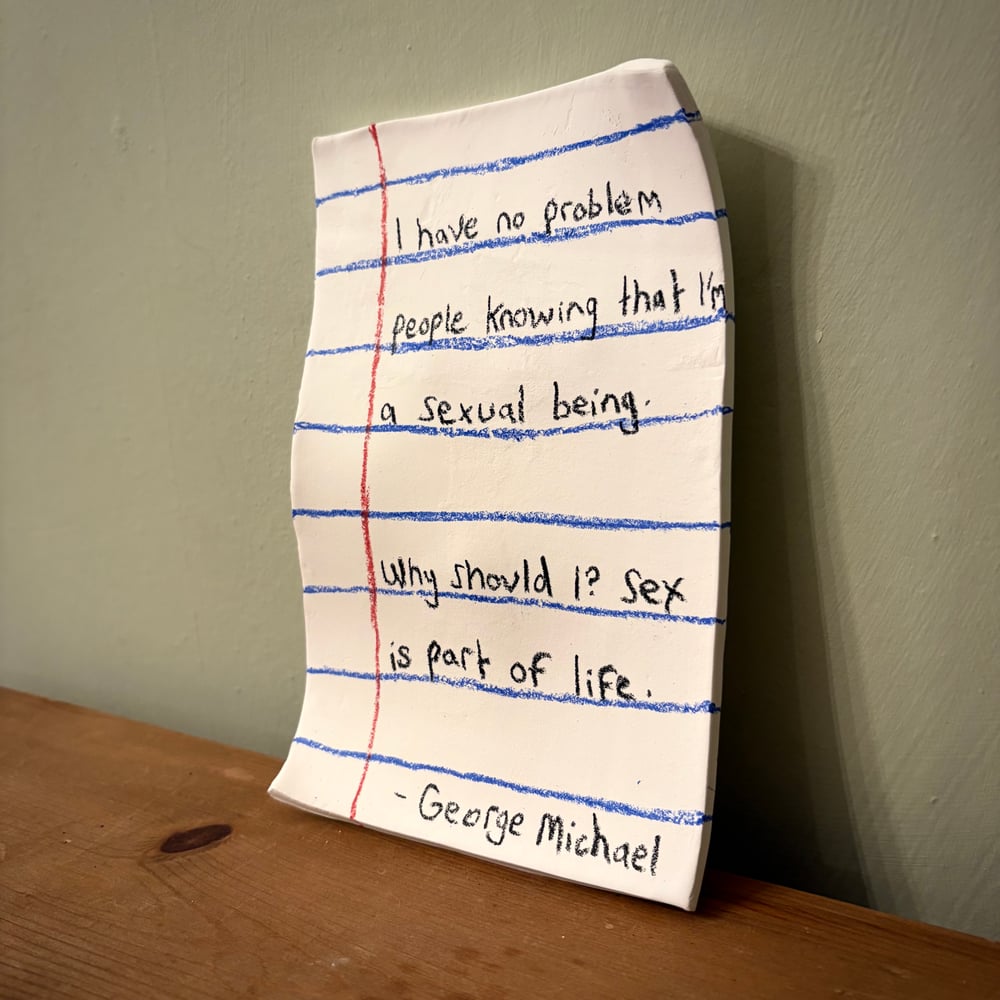 I have no problem
people knowing that I'm
a sexual being.
Why should I? Sex
is part of life.
- George Michael